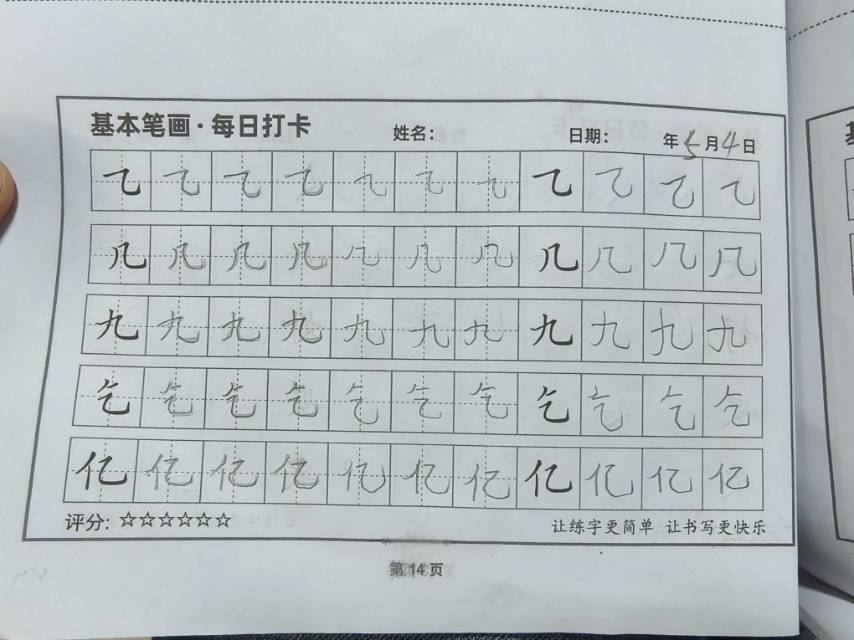 基本笔画·每日打卡 姓名: 日期: 年5月4日
乙乙乙乙乙乙乙乙乙乙乙
几几几几几几几几几几几
九九九九九九九九九九九
乞乞乞乞乞乞乞乞乞乞乞
亿亿亿亿亿亿亿亿亿亿亿
评分:☆☆☆☆☆☆ 让练字更简单 让书写更快乐
第14页